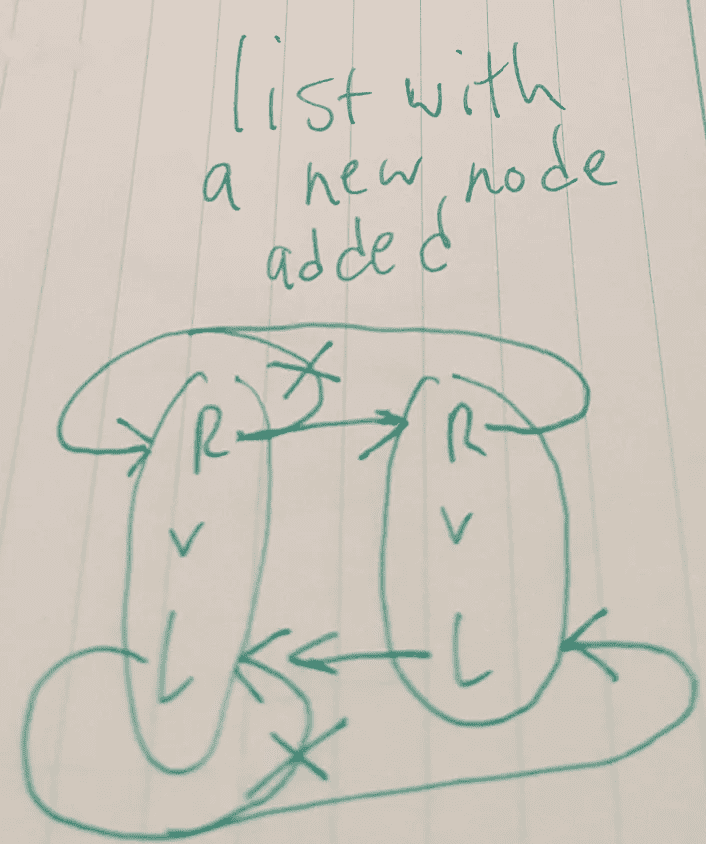 list with
a new node
added
R R
V V
L L